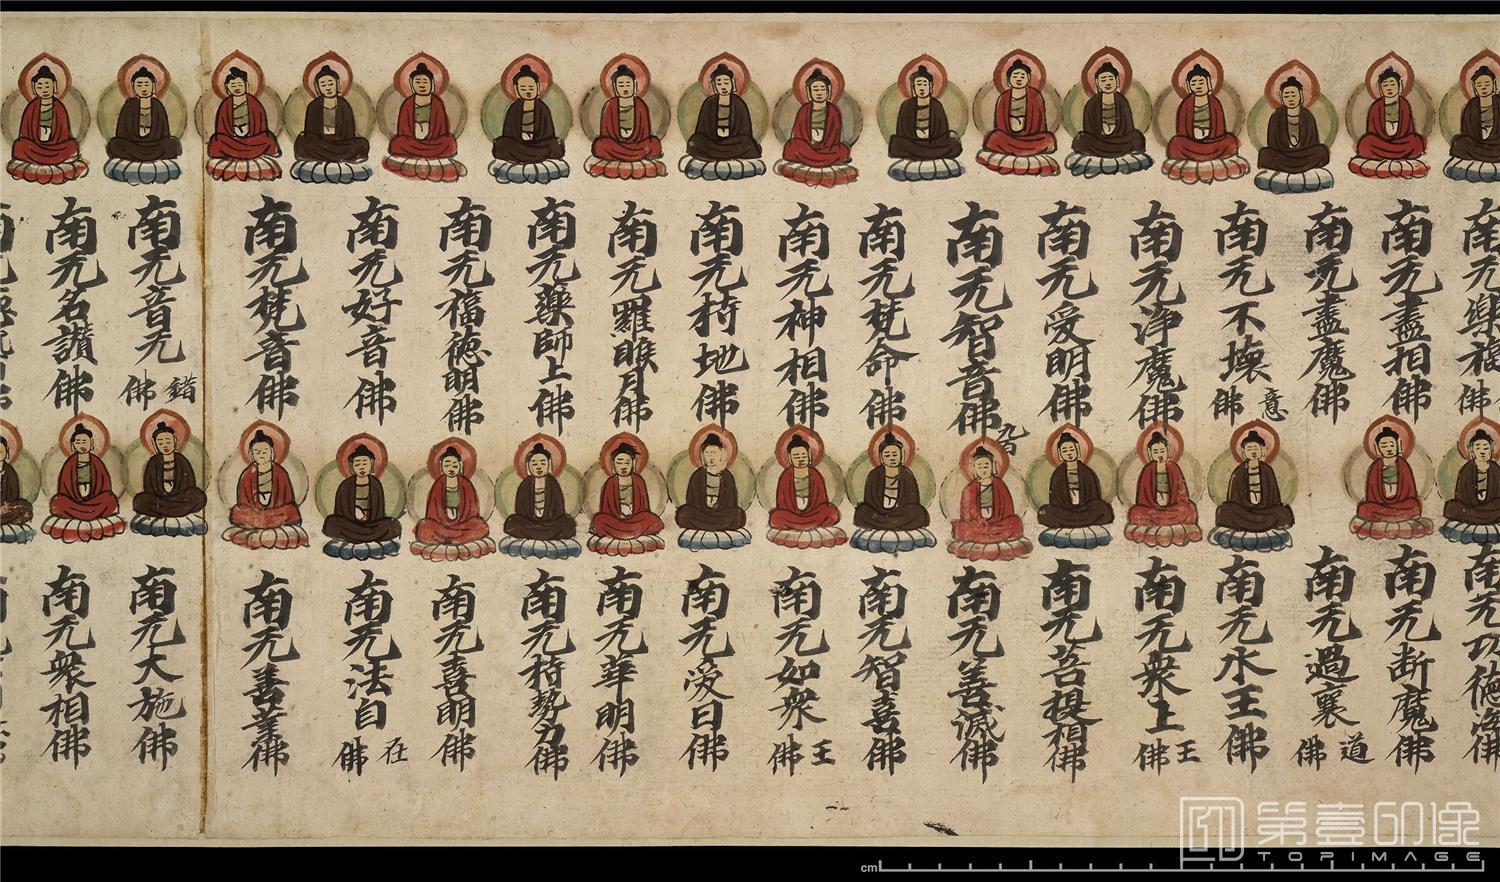 南无樂福佛
南无盡相佛
南无盡魔佛
南无不壞意佛
南无淨魔佛
南无愛明佛
南无智音佛
九百
南无梵命佛
南无神相佛
南无持地佛
南无羅睺月佛
南无藥師上佛
南无福德明佛
南无好音佛
南无梵音佛
南无音无錯佛
南无名讚佛
南无功德淨佛
南无断魔佛
南无過襄道佛
南无水王佛
南无衆上王佛
南无菩提相佛
南无善滅佛
南无智喜佛
南无如衆王佛
南无愛日佛
南无華明佛
南无持勢力佛
南无喜明佛
南无法自在佛
南无善業佛
南无大施佛
南无衆相佛
第壹印像
TOPIMAGE
cm